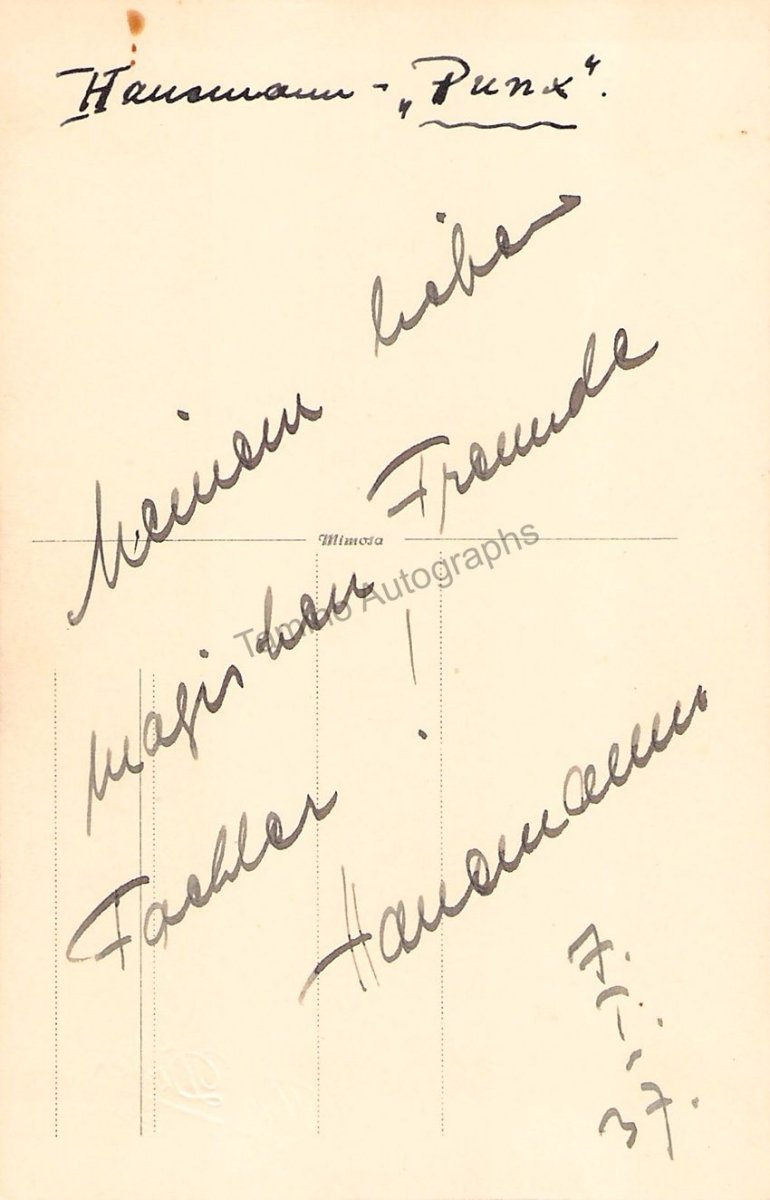 Hausmann - „Punx".
Meinem lieben
magischen Freunde
Fachler!
Hausmann
7.
I.
37.
Mimosa
Tamino Autographs